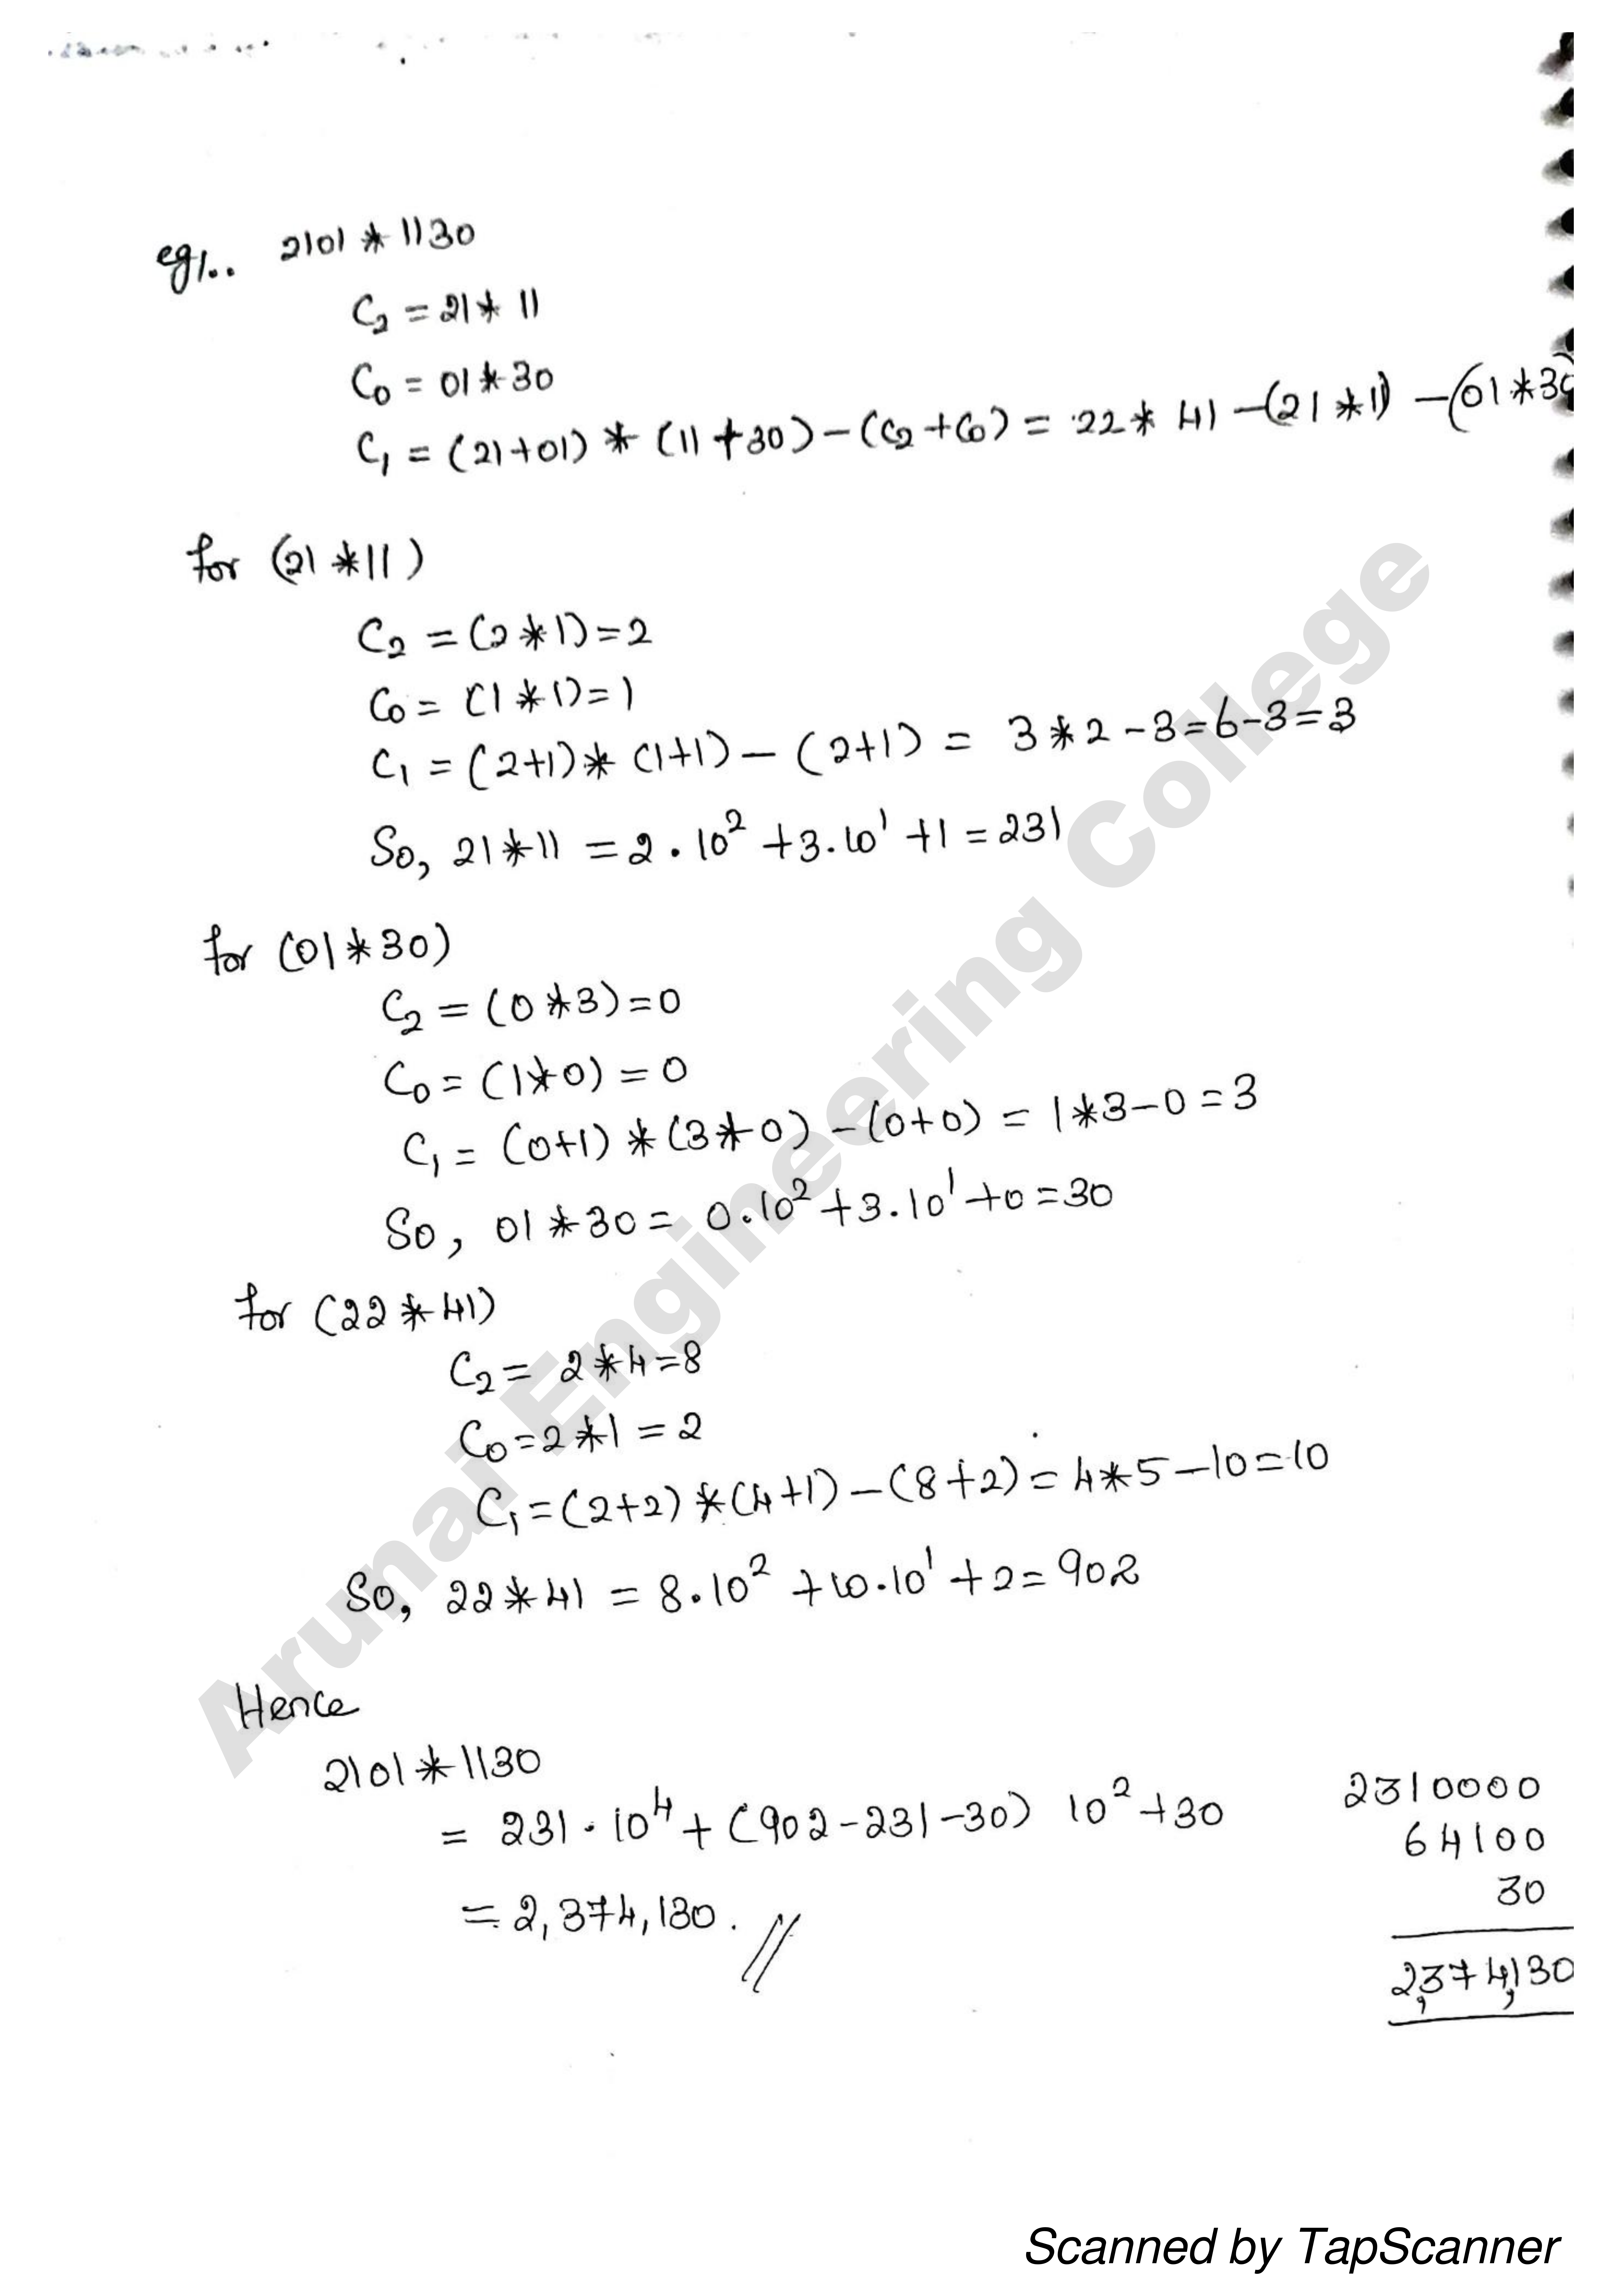 eg:.. 2101 * 1130
C₂ = 21 * 11
C₀ = 01 * 30
C₁ = (21+01) * (11+30) - (C₂+C₀) = 22 * 41 - (21 * 11) - (01 * 30
for (21 * 11)
C₂ = (2 * 1) = 2
C₀ = (1 * 1) = 1
C₁ = (2+1) * (1+1) - (2+1) = 3 * 2 - 3 = 6 - 3 = 3
So, 21 * 11 = 2 . 10² + 3 . 10¹ + 1 = 231
for (01 * 30)
C₂ = (0 * 3) = 0
C₀ = (1 * 0) = 0
C₁ = (0+1) * (3 * 0) - (0+0) = 1 * 3 - 0 = 3
So, 01 * 30 = 0 . 10² + 3 . 10¹ + 0 = 30
for (22 * 41)
C₂ = 2 * 4 = 8
C₀ = 2 * 1 = 2
C₁ = (2+2) * (4+1) - (8+2) = 4 * 5 - 10 = 10
So, 22 * 41 = 8 . 10² + 10 . 10¹ + 2 = 902
Hence
2101 * 1130
= 231 . 10⁴ + (902 - 231 - 30) 10² + 30
= 2,374,130. //
2310000
64100
30
2,374,130
Arunai Engineering College
Scanned by TapScanner